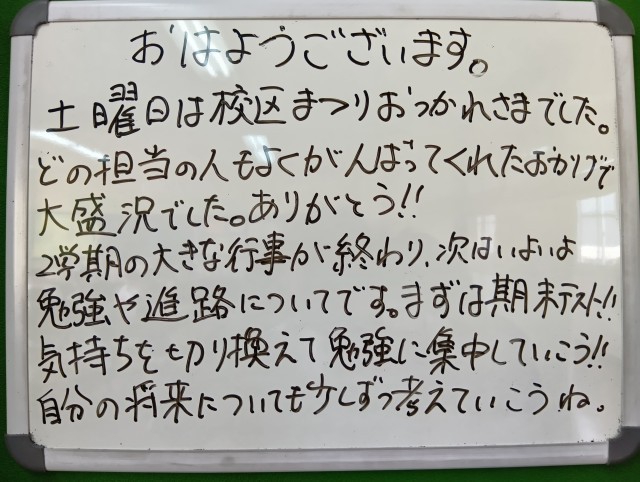 おはようございます。
土曜日は校区まつりおつかれさまでした。
どの担当の人もよくがんばってくれたおかげで
大盛況でした。ありがとう!!
2学期の大きな行事が終わり、次はいよいよ
勉強や進路についてです。まずは期末テスト!!
気持ちを切り換えて勉強に集中していこう!!
自分の将来についても少しずつ考えていこうね。